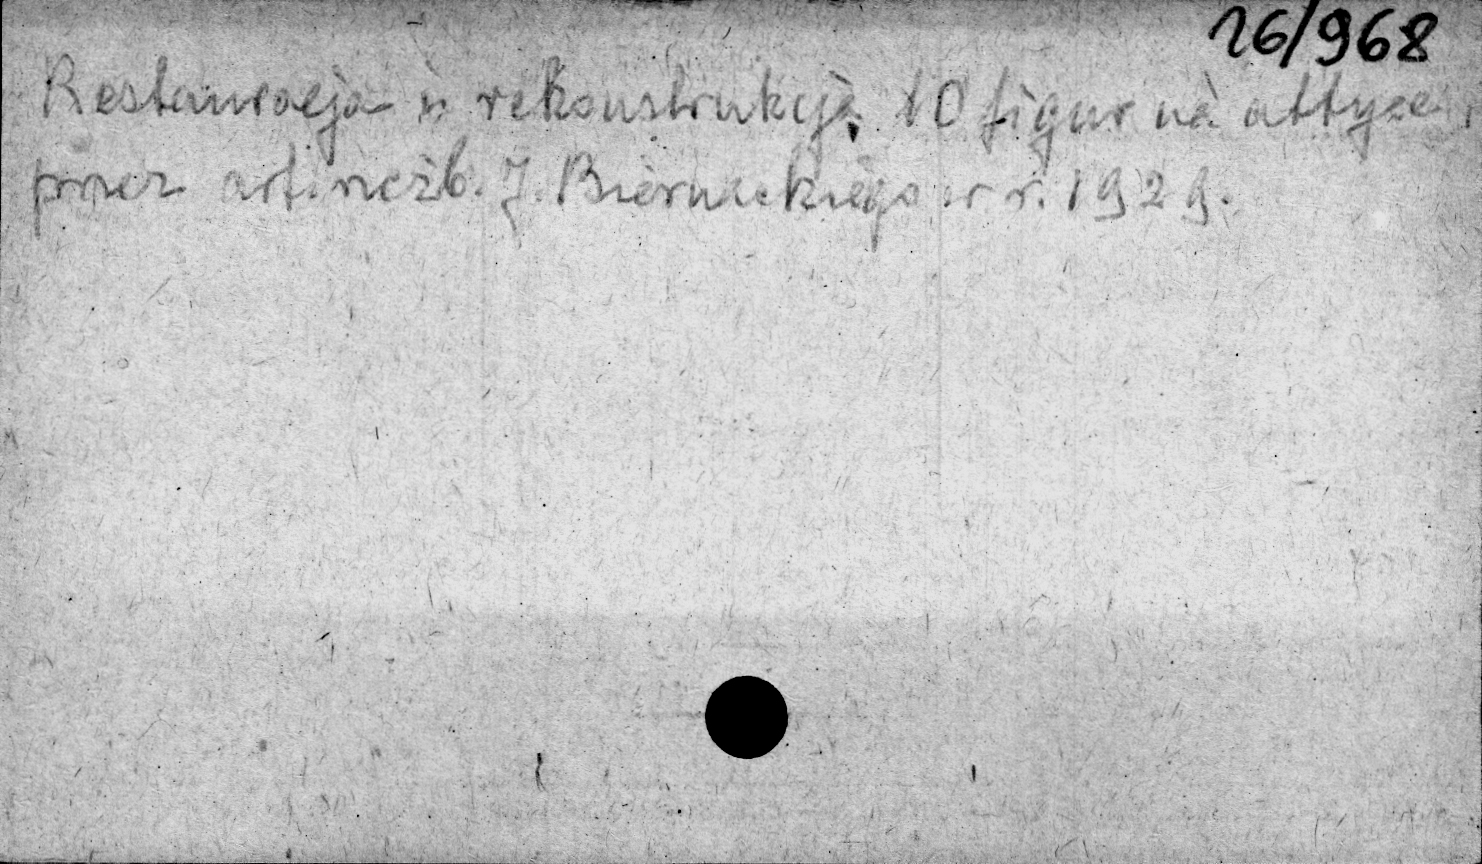 26/968
Restauracja i rekonstrukcja 10 figur na attyce
przez art. rzeźb. J. Biernackiego w r. 1929.